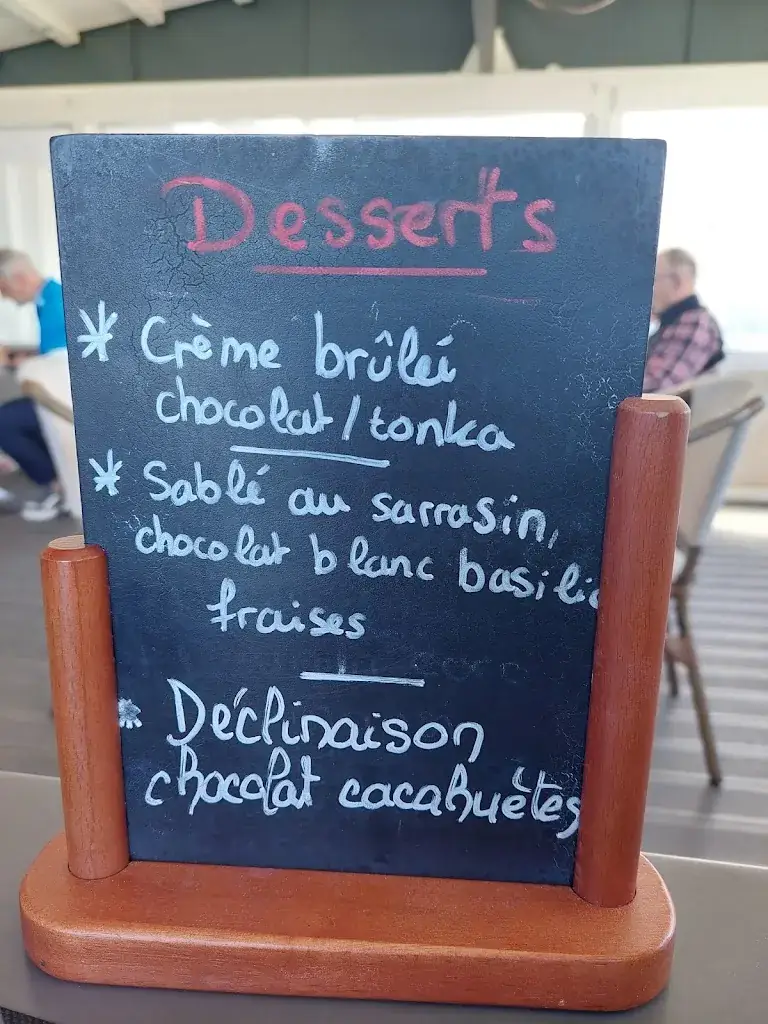 Desserts
* Crème brûlée
chocolat/tonka
* Sablé au sarrasin,
chocolat blanc basilic
fraises
* Déclinaison
chocolat cacahuètes